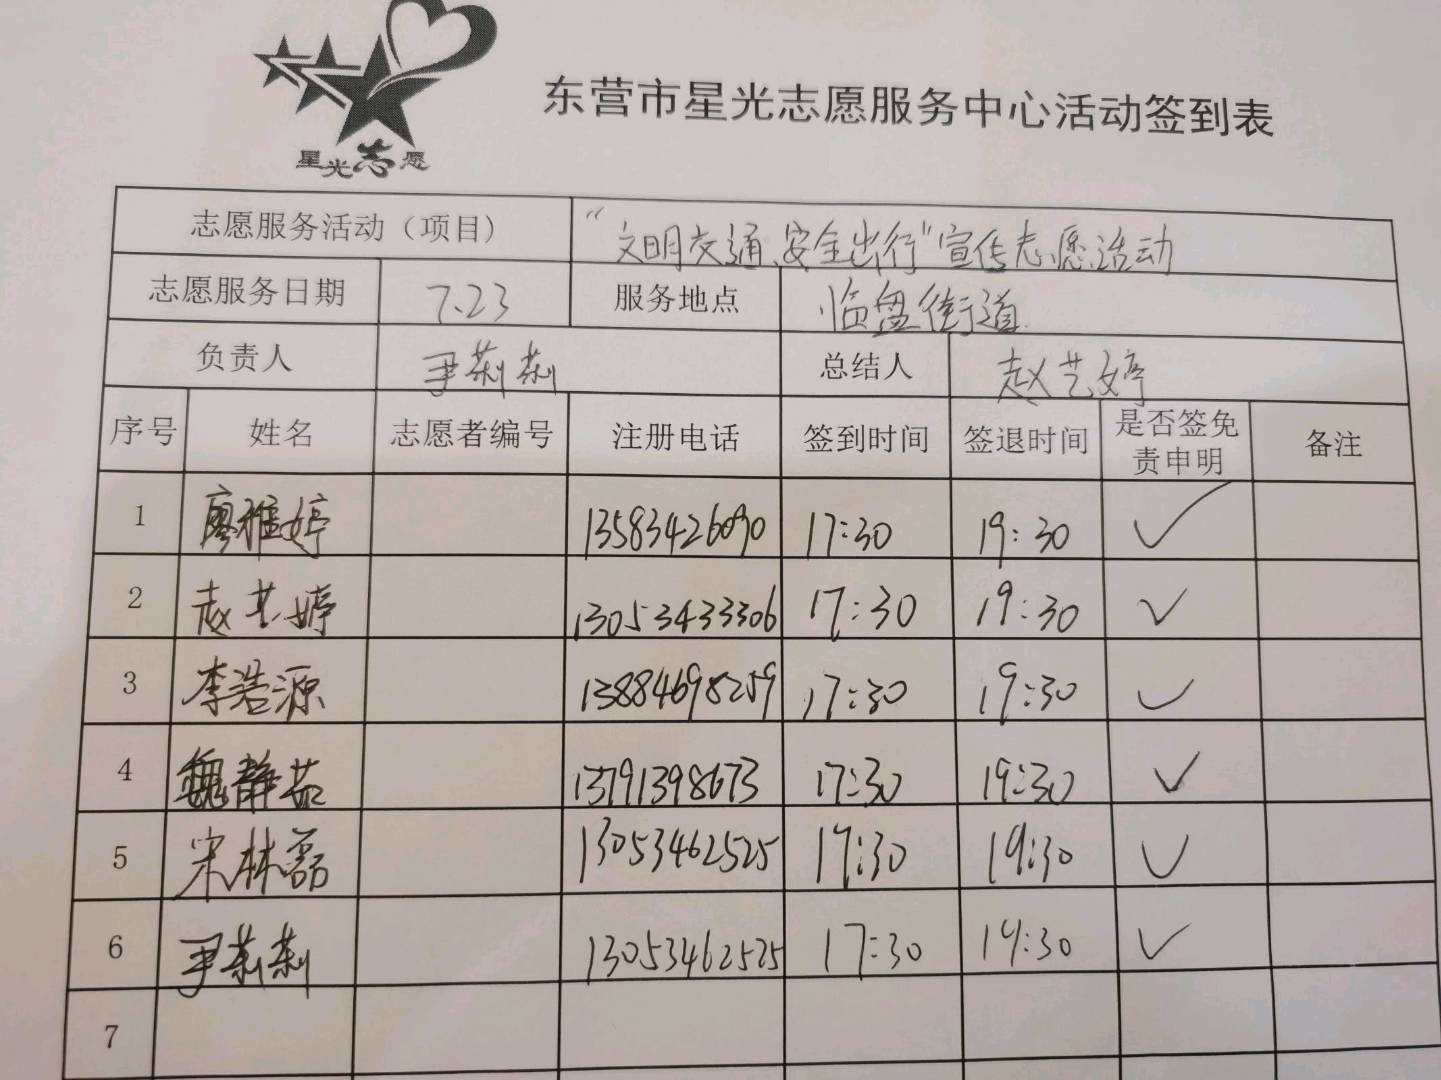 星光志愿
东营市星光志愿服务中心活动签到表
志愿服务活动（项目） “文明交通、安全出行”宣传志愿活动
志愿服务日期 7.23 服务地点 临盘街道
负责人 尹莉莉 总结人 赵艺婷
序号 姓名 志愿者编号 注册电话 签到时间 签退时间 是否签免责申明 备注
1 廖雅婷 13583426090 17:30 19:30 ✓
2 赵艺婷 13053433306 17:30 19:30 ✓
3 李浩源 13884698259 17:30 19:30 ✓
4 魏静茹 13791398673 17:30 19:30 ✓
5 宋林磊 13053462525 17:30 19:30 ✓
6 尹莉莉 13053462525 17:30 19:30 ✓
7